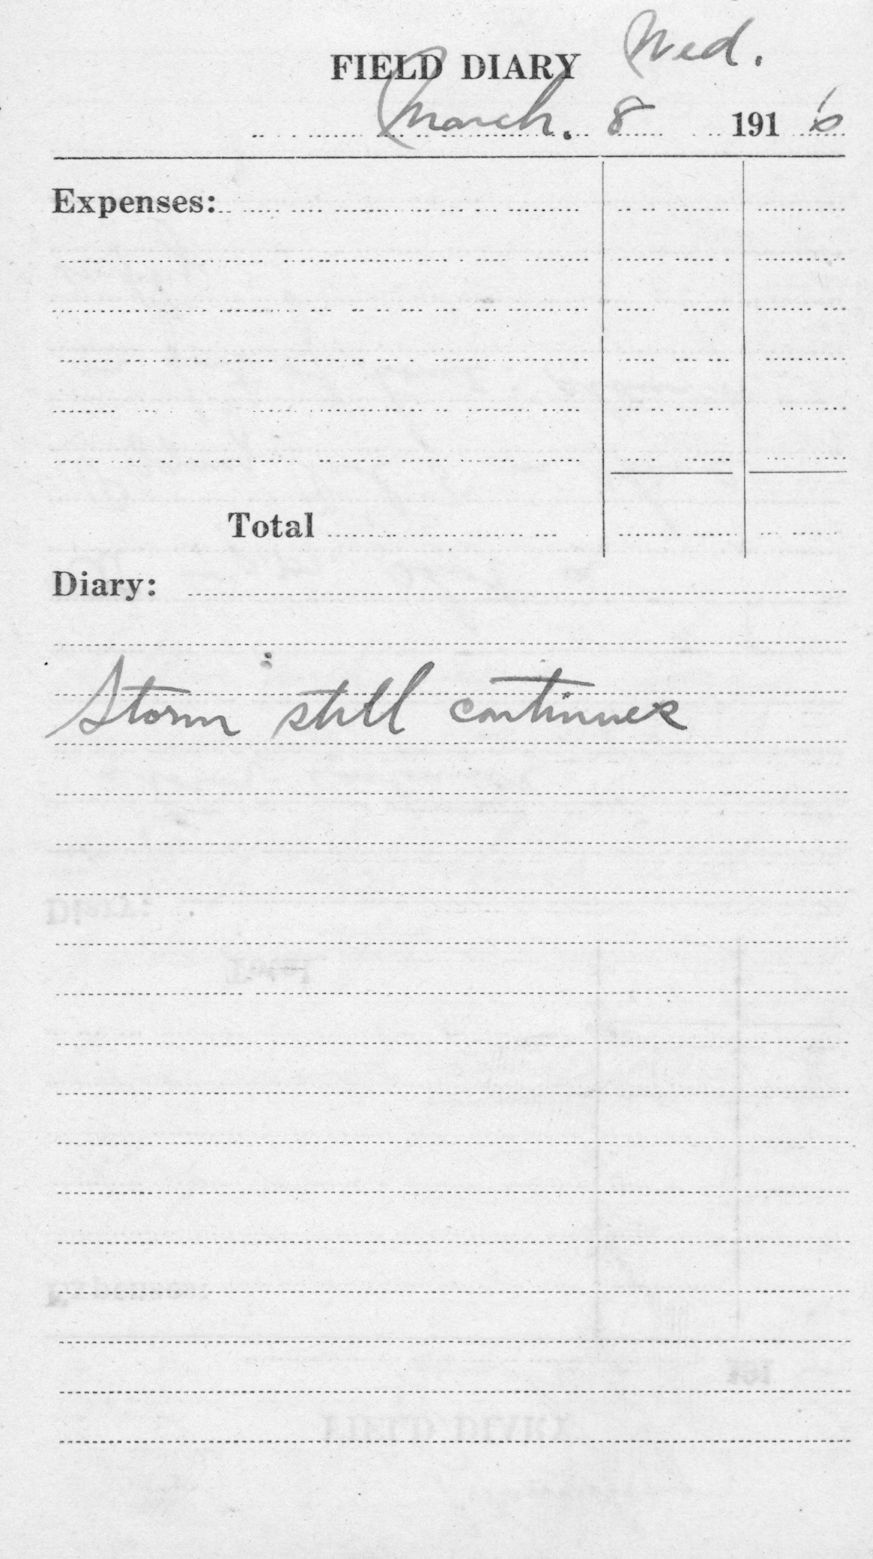 FIELD DIARY Wed.
March. 8 1916
Expenses:
Total
Diary:
Storm still continues